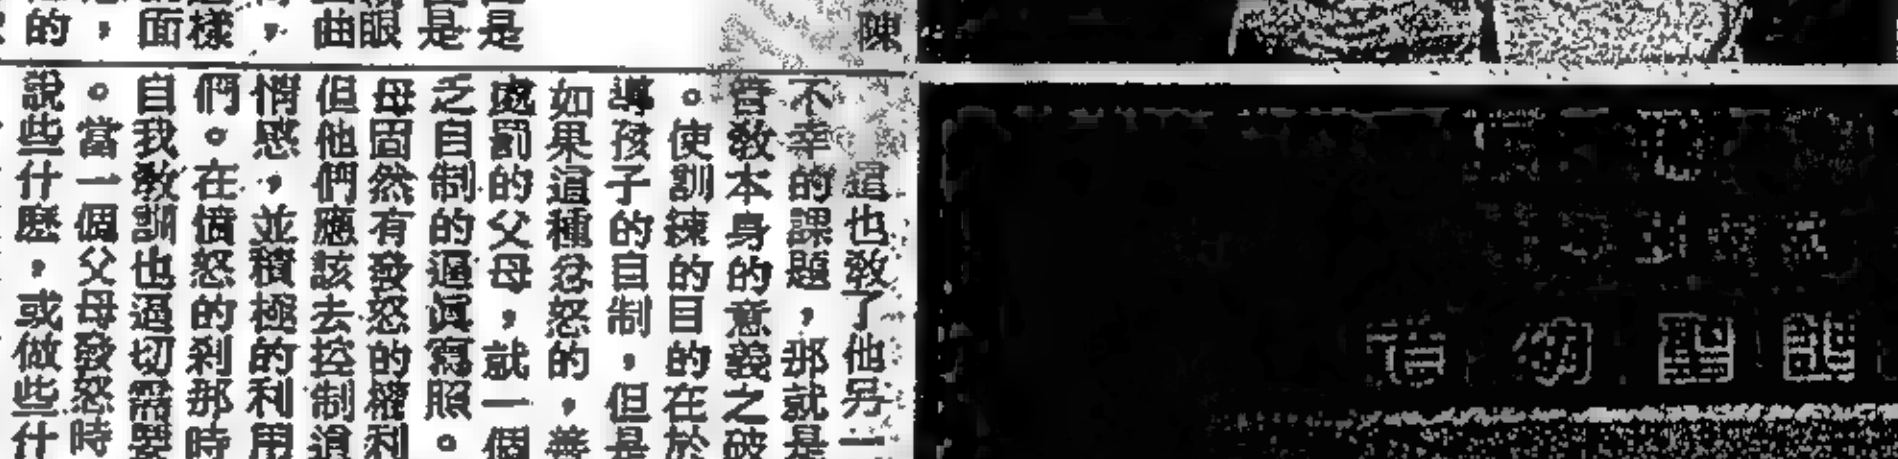 陳
是
是
眼
曲
，
樣
面
，
的
這也教了他另一
不幸的課題，那就是
管教本身的意義之破
。使訓練的目的在於
導孩子的自制，但是
如果這種忿怒的，善
處罰的父母，就一個
乏自制的逼眞寫照。
母固然有發怒的權利
但他們應該去控制這
情感，並積極的利用
們。在憤怒的剎那時
自我教訓也迫切需要
。當一個父母發怒時
說些什麽，或做些什